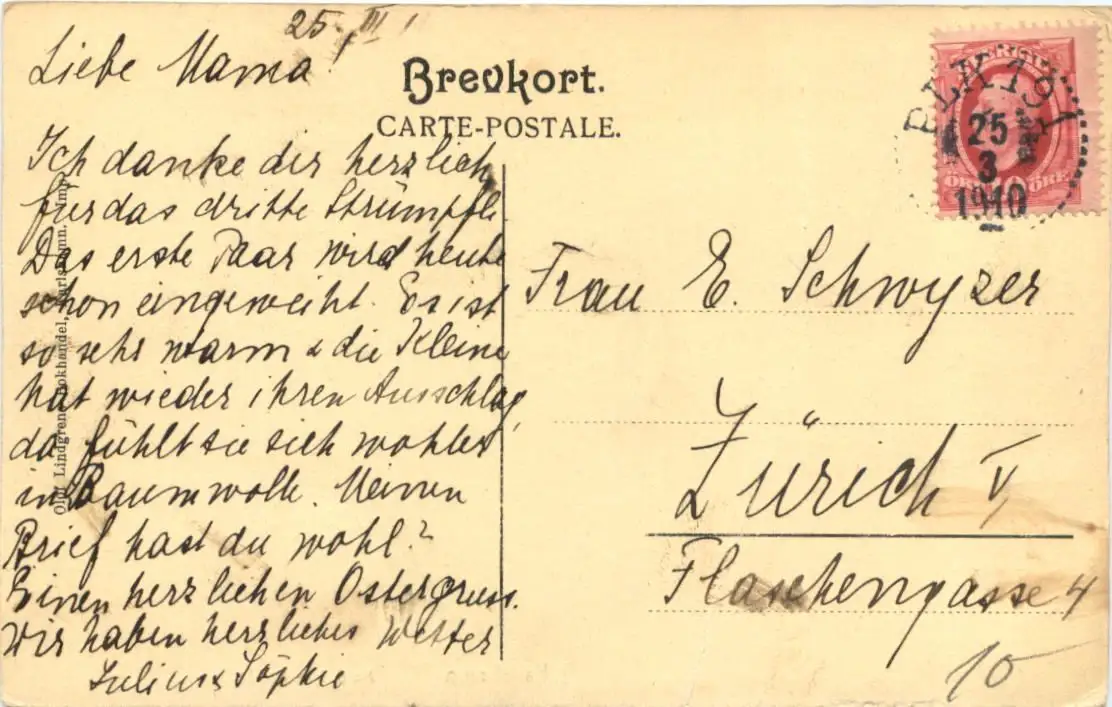 25. III
Liebe Mama!
Ich danke dir herzlich
für das dritte Strümpfli.
Das erste Paar wird heute
schon eingeweiht. Es ist
so sehr warm & die Kleine
hat wieder ihren Ausschlag,
da fühlt sie sich wohler
in Baumwolle. Meinen
Brief hast du wohl?
Einen herzlichen Ostergruss.
Wir haben herrliches Wetter
Julius & Sophie
Brevkort.
CARTE-POSTALE.
Olof Lindgrens Bokhandel, Karlshamn. Imp.
PLK 191
25
3
1910
SVERIGE
10
ÖRE
Frau E. Schwyzer
Zürich V,
Flaschengasse 4
10